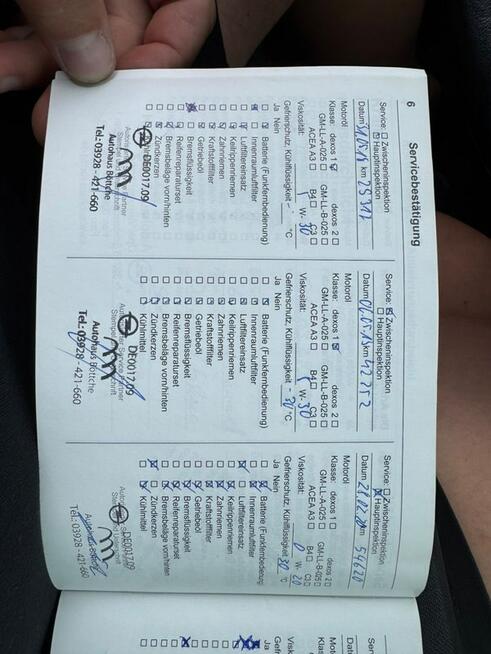 6
Servicebestätigung
Service: ☐ Zwischeninspektion
☒ Hauptinspektion
km 25 311
Motoröl
Klasse: dexos 1 ☒ dexos 2 ☐
GM-LL-A-025 ☐ GM-LL-B-025 ☐
ACEA A3 ☐ B4 ☐ C3 ☐
Viskosität: W- 30
Gefrierschutz, Kühlflüssigkeit - °C
Ja Nein
Batterie (Funkfernbedienung)
Innenraumluftfilter
Luftfiltereinsatz
Keilrippenriemen
Zahnriemen
Kraftstofffilter
Getriebeöl
Bremsflüssigkeit
Reifenreparaturset
Bremsbeläge vorn/hinten
Zündkerzen
DE0017.09
Autohaus Böttche
Tel.: 03928 - 421-660
Service: ☒ Zwischeninspektion
☐ Hauptinspektion
km 42 252
Motoröl
Klasse: dexos 1 ☒ dexos 2 ☐
GM-LL-A-025 ☐ GM-LL-B-025 ☐
ACEA A3 ☐ B4 ☐ C3 ☐
Viskosität: W- 30
Gefrierschutz, Kühlflüssigkeit - °C
Ja Nein
Batterie (Funkfernbedienung)
Innenraumluftfilter
Luftfiltereinsatz
Keilrippenriemen
Zahnriemen
Kraftstofffilter
Getriebeöl
Bremsflüssigkeit
Reifenreparaturset
Bremsbeläge vorn/hinten
Zündkerzen
Kühlmittel
DE0017.09
Autohaus Böttche
Tel.: 03928 - 421-660
Service: ☐ Zwischeninspektion
Hauptinspektion
km 54620
Motoröl
Klasse: dexos 1 ☐ dexos 2 ☐
GM-LL-A-025 ☐ GM-LL-B-025 ☐
ACEA A3 ☐ B4 ☐ C3 ☐
Viskosität: 0 W- 20
Gefrierschutz, Kühlflüssigkeit 30 °C
Ja Nein
Batterie (Funkfernbedienung)
Innenraumluftfilter
Luftfiltereinsatz
Keilrippenriemen
Zahnriemen
Kraftstofffilter
Getriebeöl
Bremsflüssigkeit
Reifenreparaturset
Bremsbeläge vorn/hinten
Zündkerzen
Kühlmittel
DE0017.09
Tel.: 03928 - 421-660